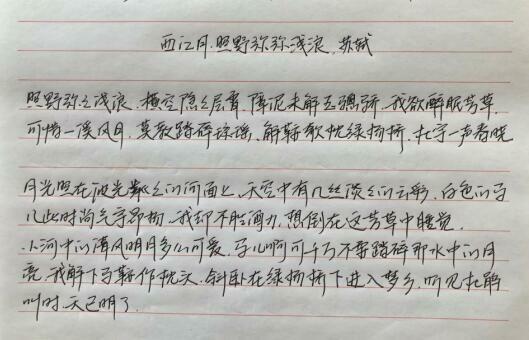 西江月·照野弥弥浅浪 苏轼
照野弥弥浅浪，横空隐隐层霄，障泥未解玉骢骄，我欲醉眠芳草。
可惜一溪风月，莫教踏碎琼瑶，解鞍欹枕绿杨桥，杜宇一声春晓
月光照在波光粼粼的河面上，天空中有几丝淡淡的云彩，白色的马
儿此时尚气宇昂扬，我却不胜酒力，想倒在这芳草中睡觉，
小河中的清风明月多么可爱，马儿啊可千万不要踏碎那水中的月
亮，我解下马鞍作枕头，斜卧在绿杨桥下进入梦乡，听见杜鹃
叫时，天已明了